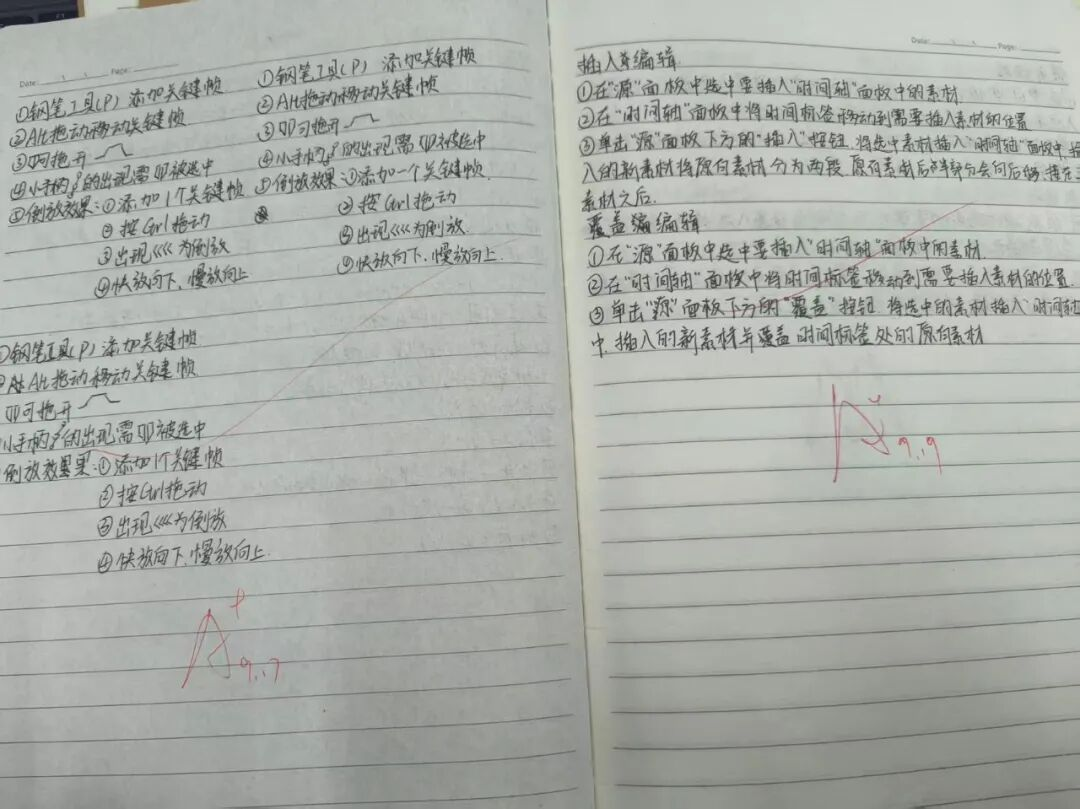 Date: Page:
①钢笔工具(P) 添加关键帧
②Alt拖动移动关键帧
③即可拖开
④小手柄的出现需即被选中
⑤倒放效果:①添加1个关键帧
②按Ctrl拖动
③出现<<<<为倒放
④快放向下、慢放向上
①钢笔工具(P) 添加关键帧
②Alt拖动移动关键帧
③即可拖开
④小手柄的出现需即被选中
⑤倒放效果:①添加一个关键帧.
②按Ctrl拖动
③出现<<<<为倒放.
④快放向下、慢放向上.
①钢笔工具(P) 添加关键帧
Alt拖动移动关键帧
即可拖开
小手柄的出现需即被选中
倒放效果:①添加1个关键帧
②按Ctrl拖动
③出现<<<<为倒放
④快放向下、慢放向上.
A+
9.7
Date: Page:
插入编辑
①在“源”面板中选中要插入“时间轴”面板中的素材
②在“时间轴”面板中将时间标签移动到需要插入素材的位置
③单击“源”面板下方的“插入”按钮.将选中素材插入“时间轴”面板中.插
入的新素材将原有素材分为两段 原有素材后半部分会向后移.接在
素材之后.
覆盖编编辑
①在“源”面板中选中要插入“时间轴”面板中的素材.
②在“时间轴”面板中将时间标签移动到需要插入素材的位置.
③单击“源”面板下方的“覆盖”按钮.将选中的素材插入“时间轴
中.插入的新素材并覆盖时间标签处的原有素材
A
9.9